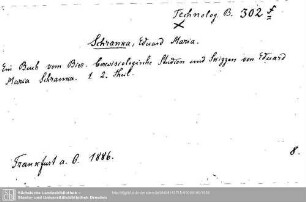 Technolog. B. 302 f
Schranka, Eduard Maria.
Ein Buch vom Bier. Cerevisiologische Studien und Skizzen von Eduard
Maria Schranka. 1. 2. Theil.
Frankfurt a. O. 1886.
8.
Sächsische Landesbibliothek -
Staats- und Universitätsbibliothek Dresden